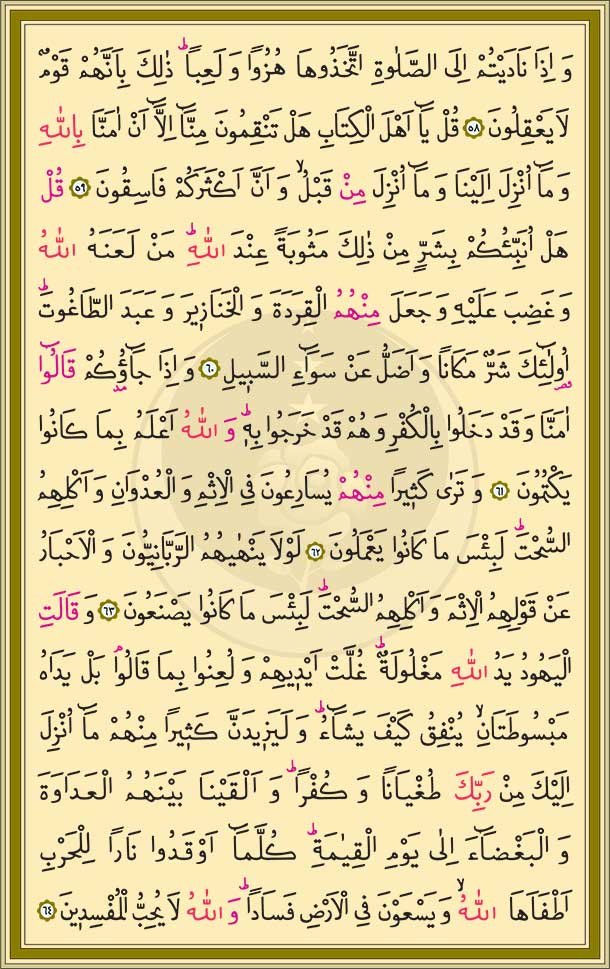 وَ اِذَا نَادَيْتُمْ اِلَى الصَّلٰوةِ اتَّخَذُوهَا هُزُوًا وَ لَعِبًاۜ ذٰلِكَ بِاَنَّهُمْ قَوْمٌ
لَا يَعْقِلُونَ ﴿٥٨﴾ قُلْ يَٓا اَهْلَ الْكِتَابِ هَلْ تَنْقِمُونَ مِنَّٓا اِلَّٓا اَنْ اٰمَنَّا بِاللّٰهِ
وَ مَٓا اُنْزِلَ اِلَيْنَا وَ مَٓا اُنْزِلَ مِنْ قَبْلُۙ وَ اَنَّ اَكْثَرَكُمْ فَاسِقُونَ ﴿٥٩﴾ قُلْ
هَلْ اُنَبِّئُكُمْ بِشَرٍّ مِنْ ذٰلِكَ مَثُوبَةً عِنْدَ اللّٰهِۜ مَنْ لَعَنَهُ اللّٰهُ
وَ غَضِبَ عَلَيْهِ وَ جَعَلَ مِنْهُمُ الْقِرَدَةَ وَ الْخَنَازٖيرَ وَ عَبَدَ الطَّاغُوتَۜ
اُو۬لٰٓئِكَ شَرٌّ مَكَانًا وَ اَضَلُّ عَنْ سَوَٓاءِ السَّبٖيلِ ﴿٦٠﴾ وَ اِذَا جَٓاؤُ۫كُمْ قَالُٓوا
اٰمَنَّا وَ قَدْ دَخَلُوا بِالْكُفْرِ وَ هُمْ قَدْ خَرَجُوا بِهٖۜ وَ اللّٰهُ اَعْلَمُ بِمَا كَانُوا
يَكْتُمُونَ ﴿٦١﴾ وَ تَرٰى كَثٖيرًا مِنْهُمْ يُسَارِعُونَ فِي الْاِثْمِ وَ الْعُدْوَانِ وَ اَكْلِهِمُ
السُّحْتَۜ لَبِئْسَ مَا كَانُوا يَعْمَلُونَ ﴿٦٢﴾ لَوْلَا يَنْهٰيهُمُ الرَّبَّانِيُّونَ وَ الْاَحْبَارُ
عَنْ قَوْلِهِمُ الْاِثْمَ وَ اَكْلِهِمُ السُّحْتَۜ لَبِئْسَ مَا كَانُوا يَصْنَعُونَ ﴿٦٣﴾ وَ قَالَتِ
الْيَهُودُ يَدُ اللّٰهِ مَغْلُولَةٌۜ غُلَّتْ اَيْدٖيهِمْ وَ لُعِنُوا بِمَا قَالُواۢ بَلْ يَدَاهُ
مَبْسُوطَتَانِۙ يُنْفِقُ كَيْفَ يَشَٓاءُۜ وَ لَيَزٖيدَنَّ كَثٖيرًا مِنْهُمْ مَٓا اُنْزِلَ
اِلَيْكَ مِنْ رَبِّكَ طُغْيَانًا وَ كُفْرًاۜ وَ اَلْقَيْنَا بَيْنَهُمُ الْعَدَاوَةَ
وَ الْبَغْضَٓاءَ اِلٰى يَوْمِ الْقِيٰمَةِۜ كُلَّمَٓا اَوْقَدُوا نَارًا لِلْحَرْبِ
اَطْفَاَهَا اللّٰهُۙ وَ يَسْعَوْنَ فِي الْاَرْضِ فَسَادًاۜ وَ اللّٰهُ لَا يُحِبُّ الْمُفْسِدٖينَ ﴿٦٤﴾